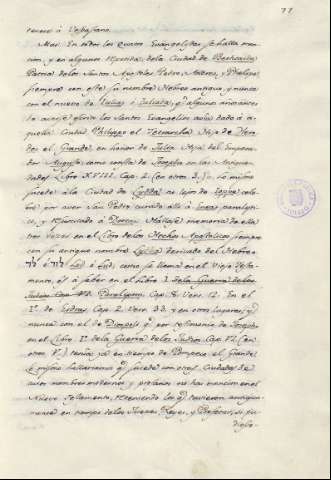 77
Mas: En todos los quatro Evangelistas se halla men-
cion, y en algunos repetida, de la Ciudad de Bethsaida
Patria de los Santos Apostoles Pedro, Andres, y Phelipe
siempre con este su nombre Hebreo antiguo, y nunca
con el nuevo de Julias, ò Juliada, qᵉ algun año antes
de escribirse los Santos Evangelios avia dado à a-
quella Ciudad Philippo el Tetrarcha Hijo de Hero-
des el Grande, en honor de Julia Hija del Empera-
dor Augusto como consta de Josepho en las Antigue-
dades Libro XVIII. Cap. 2. (en otros 3.). Lo mismo
sucede à la Ciudad de Lydda no lejos de Joppe cele-
bre por aver San Pedro curado allà à Eneas paralyti-
co, y resucitado à Dorcas. Hallase memoria de ella
tres veces en el Libro de los Hechos Apostolicos, siempre
con su antiguo nombre Lydda derivado del Hebreo
לוד ò לד Lod ò Lud, como se llama en el Viejo Testa-
mento, es à saber en el Libro I.
Paralipom. Cap. 8. Vers. 12. En el
I.º de Esdras Cap. 2. Vers. 33. y en otros lugares; y
nunca con el de Diospolis qᵉ por testimonio de Josepho
en el Libro I.º de la Guerra de los Judios Cap. VI. (en
otros V.) tenia yà en tiempo de Pompeio el Grande.
Lo mismo hallariamos qᵉ sucede con otras Ciudades, qᵉ
aver nombres modernos, y profanos no hai mencion en el
Nuevo Testamento, reteniendo los qᵉ tuvieron antigua-
mente en tiempo de los Jueces, Reyes, y Profetas; si pu-
diesse-